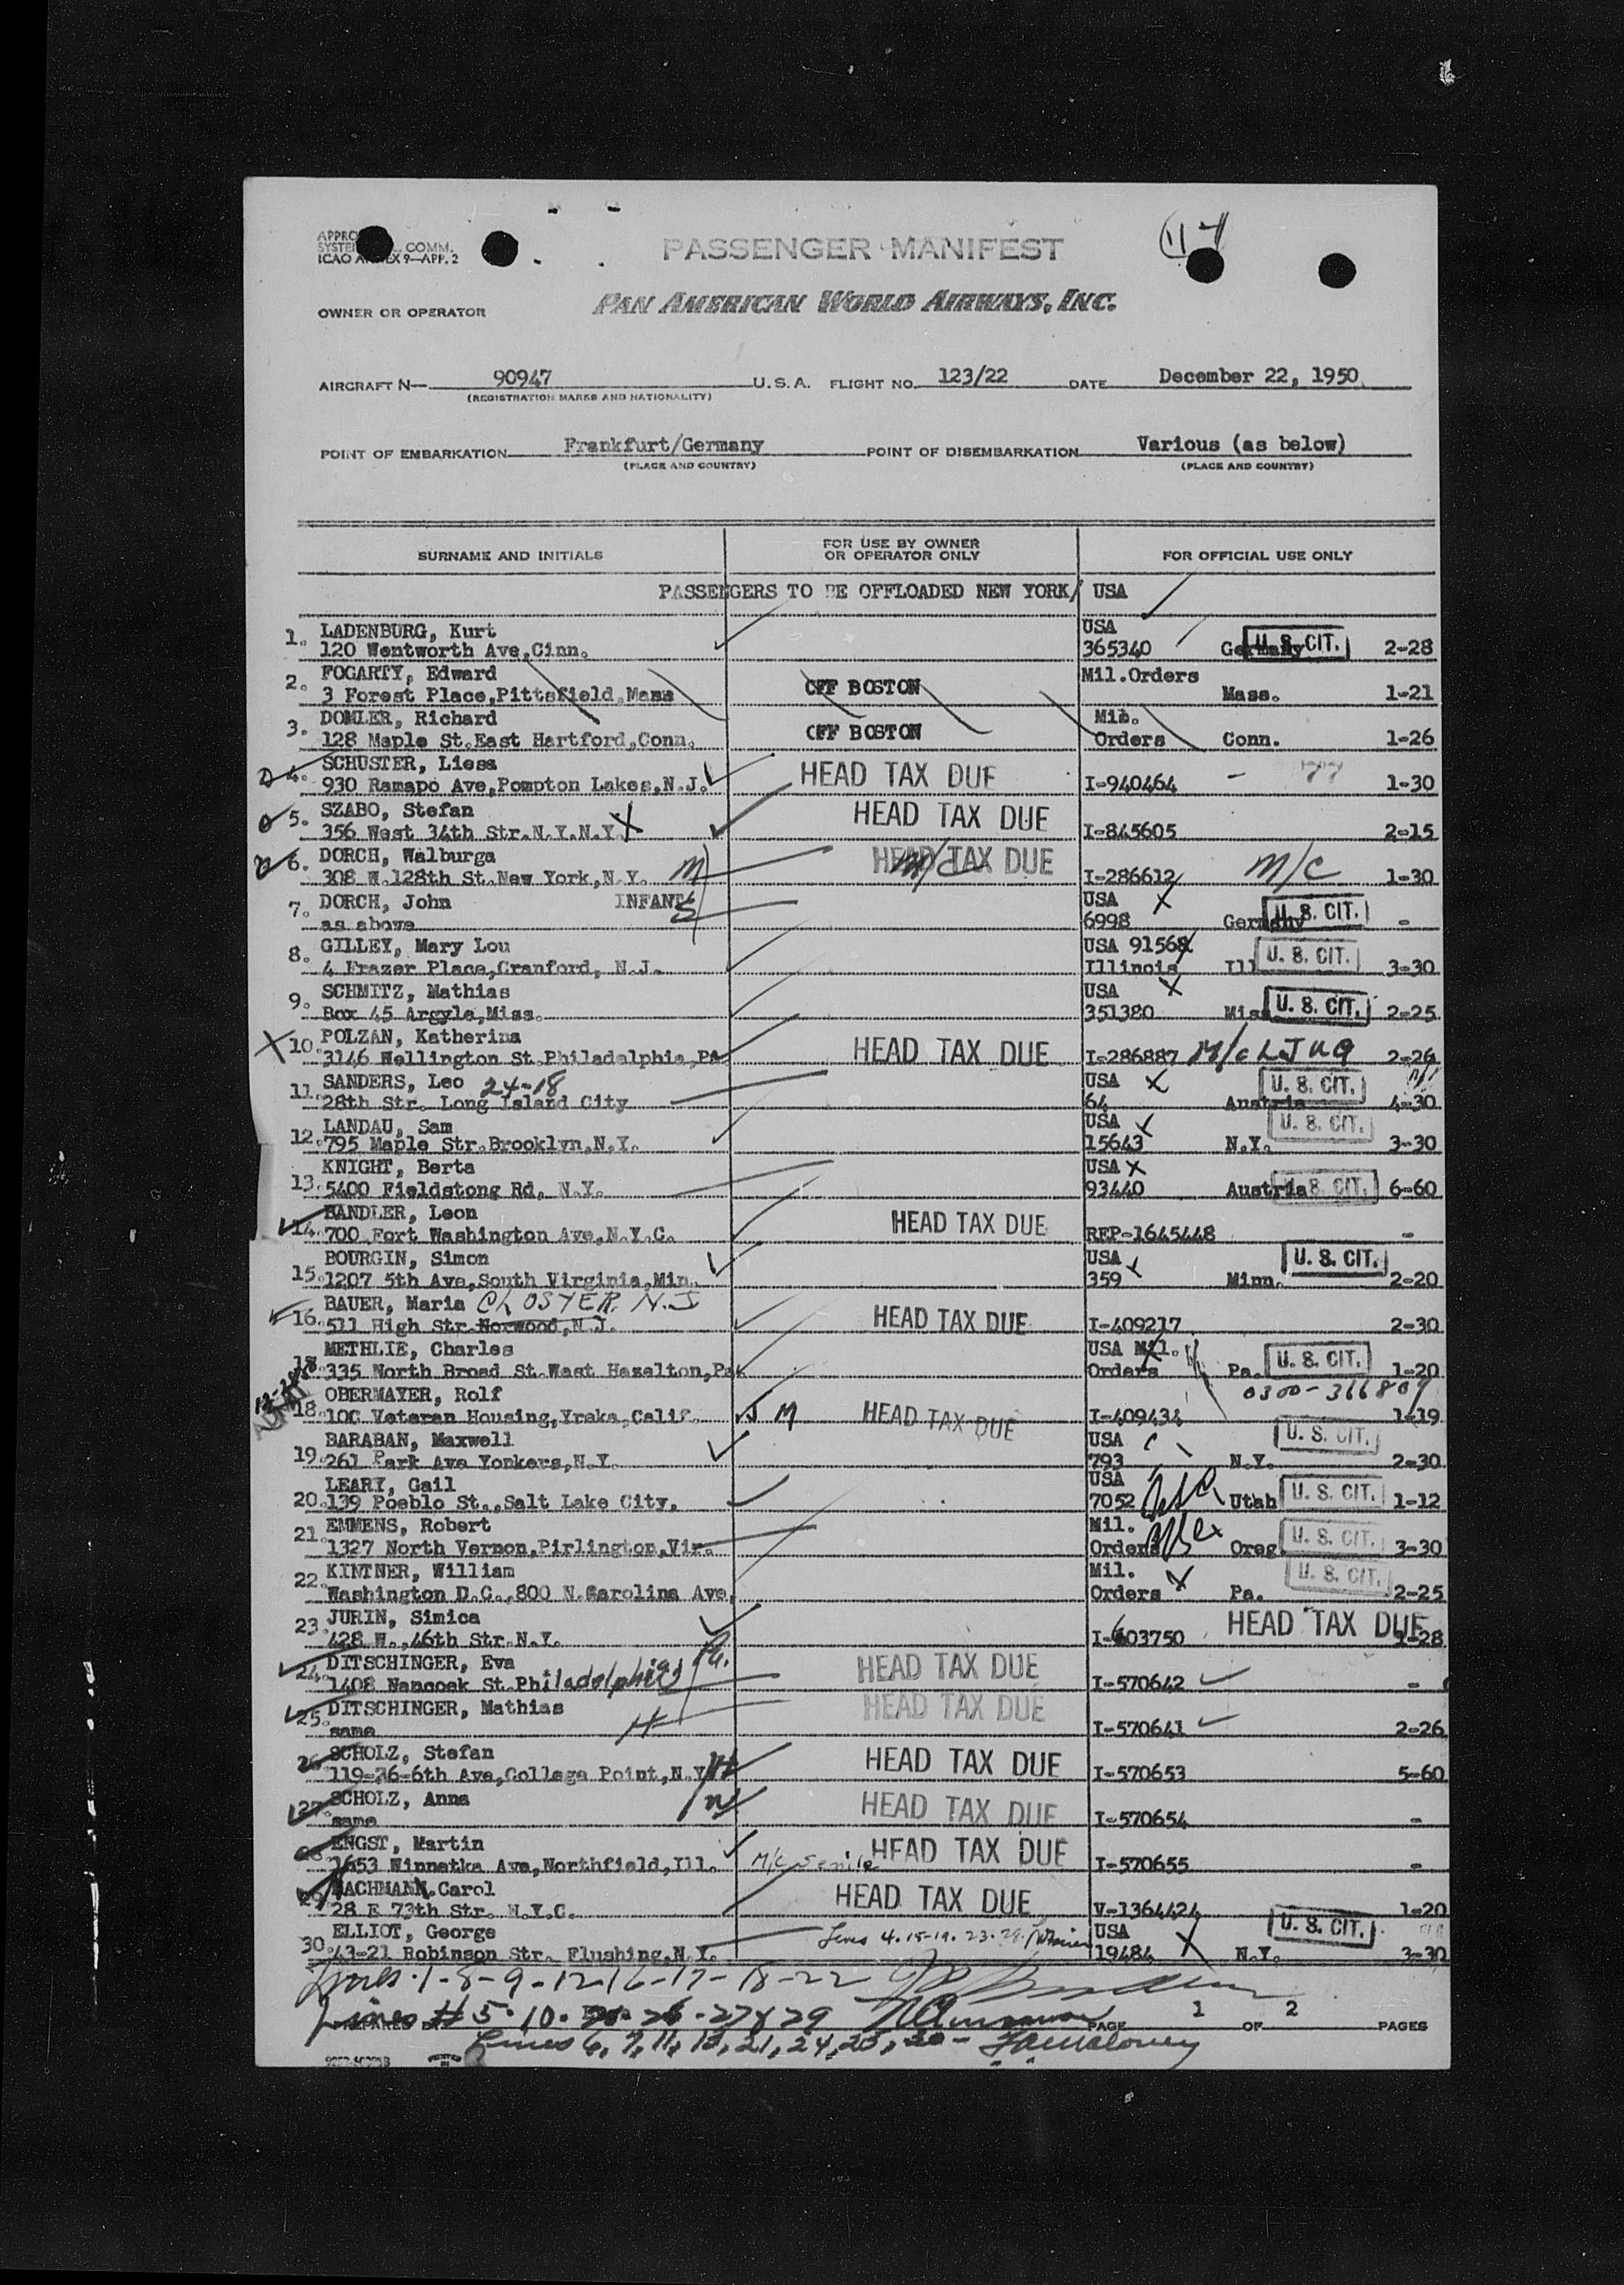 PASSENGER MANIFEST
COMM.
ICAO ANNEX 9—APP. 2
OWNER OR OPERATOR PAN AMERICAN WORLD AIRWAYS, INC.
AIRCRAFT N— 90947 U.S.A. FLIGHT NO. 123/22 DATE December 22, 1950
(REGISTRATION MARKS AND NATIONALITY)
POINT OF EMBARKATION Frankfurt/Germany POINT OF DISEMBARKATION Various (as below)
(PLACE AND COUNTRY) (PLACE AND COUNTRY)
SURNAME AND INITIALS FOR USE BY OWNER OR OPERATOR ONLY FOR OFFICIAL USE ONLY
PASSENGERS TO BE OFFLOADED NEW YORK/ USA
1. LADENBURG, Kurt USA
120 Wentworth Ave,Cinn. 365340 Germany U. S. CIT. 2-28
2. FOGARTY, Edward OFF BOSTON Mil.Orders
3 Forest Place,Pittsfield,Mass Mass. 1-21
3. DOMLER, Richard OFF BOSTON Mil.
128 Maple St.East Hartford,Conn. Orders Conn. 1-26
4. SCHUSTER, Liesa HEAD TAX DUE
930 Ramapo Ave,Pompton Lakes,N.J. I-940464 - 77 1-30
5. SZABO, Stefan HEAD TAX DUE
356 West 34th Str.N.Y.N.Y. X I-845605 2-15
6. DORCH, Walburga HEAD TAX DUE M/C
308 W.128th St.New York,N.Y. M I-286612 M/C 1-30
7. DORCH, John INFANT USA X
as above 6998 Germany U. S. CIT. -
8. GILLEY, Mary Lou USA 91568
4 Frazer Place,Cranford, N.J. Illinois Ill U. S. CIT. 3-30
9. SCHMITZ, Mathias USA X
Box 45 Argyle,Miss. 351380 Miss U. S. CIT. 2-25
X 10. POLZAN, Katherina HEAD TAX DUE
3146 Wellington St.Philadelphia,PA I-286887 M/C 2-26
11. SANDERS, Leo 24-18 USA X
28th Str. Long Island City 64 Austria U. S. CIT. 4-30
12. LANDAU, Sam USA X
795 Maple Str.Brooklyn,N.Y. 15643 N.Y. U. S. CIT. 3-30
13. KNIGHT, Berta USA X
5400 Fieldstong Rd, N.Y. 93440 Austria U. S. CIT. 6-60
14. BANDLER, Leon HEAD TAX DUE
700 Fort Washington Ave,N.Y.C. REP-1645448 -
15. BOURGIN, Simon USA
1207 5th Ave,South Virginia,Min. 359 X Minn. U. S. CIT. 2-20
16. BAUER, Maria CLOSTER, N.J HEAD TAX DUE
511 High Str Norwood,N.J. I-409217 2-30
METHLIE, Charles USA Mil.
335 North Broad St.West Hazelton,Pa Orders Pa. U. S. CIT. 1-20
18. OBERMAYER, Rolf 0300-366809
100 Veteran Housing,Yreka,Calif. J M HEAD TAX DUE I-409434 1-19
19. BARABAN, Maxwell USA
261 Park Ave Yonkers,N.Y. 793 N.Y. U. S. CIT. 2-30
20. LEARY, Gail USA
139 Poeblo St.,Salt Lake City, 7052 Utah U. S. CIT. 1-12
21. EMMENS, Robert Mil.
1327 North Vernon,Pirlington,Vir. Orders Oreg. U. S. CIT. 3-30
22. KINTNER, William Mil.
Washington D.C.,800 N.Carolina Ave, Orders X Pa. U. S. CIT. 2-25
23. JURIN, Simica HEAD TAX DUE
428 W.,46th Str.N.Y. I-603750 1-28
24. DITSCHINGER, Eva HEAD TAX DUE
1408 Nancoek St.Philadelphia, Pa. I-570642 -
25. DITSCHINGER, Mathias HEAD TAX DUE
same H I-570641 2-26
26. SCHOLZ, Stefan HEAD TAX DUE
119-36-6th Ave,College Point,N.Y. I-570653 5-60
27. SCHOLZ, Anna HEAD TAX DUE
same I-570654 -
28. ENGST, Martin HEAD TAX DUE
1653 Winnetka Ave,Northfield,Ill. M/C Senile I-570655 -
29. BACHMANN.Carol HEAD TAX DUE
28 E 73th Str. N.Y.C. V-1364424 1-20
30. ELLIOT, George USA U. S. CIT.
43-21 Robinson Str. Flushing.N.Y. Lines 4.15-19.23.28. 19484 X N.Y. 3-30
Lines 1-8-9-12-16-17-18-22
Lines # 5-10-26-27 & 29
PAGE 1 OF 2 PAGES
Lines 6, 7, 11, 13, 21, 24, 25, 30 -